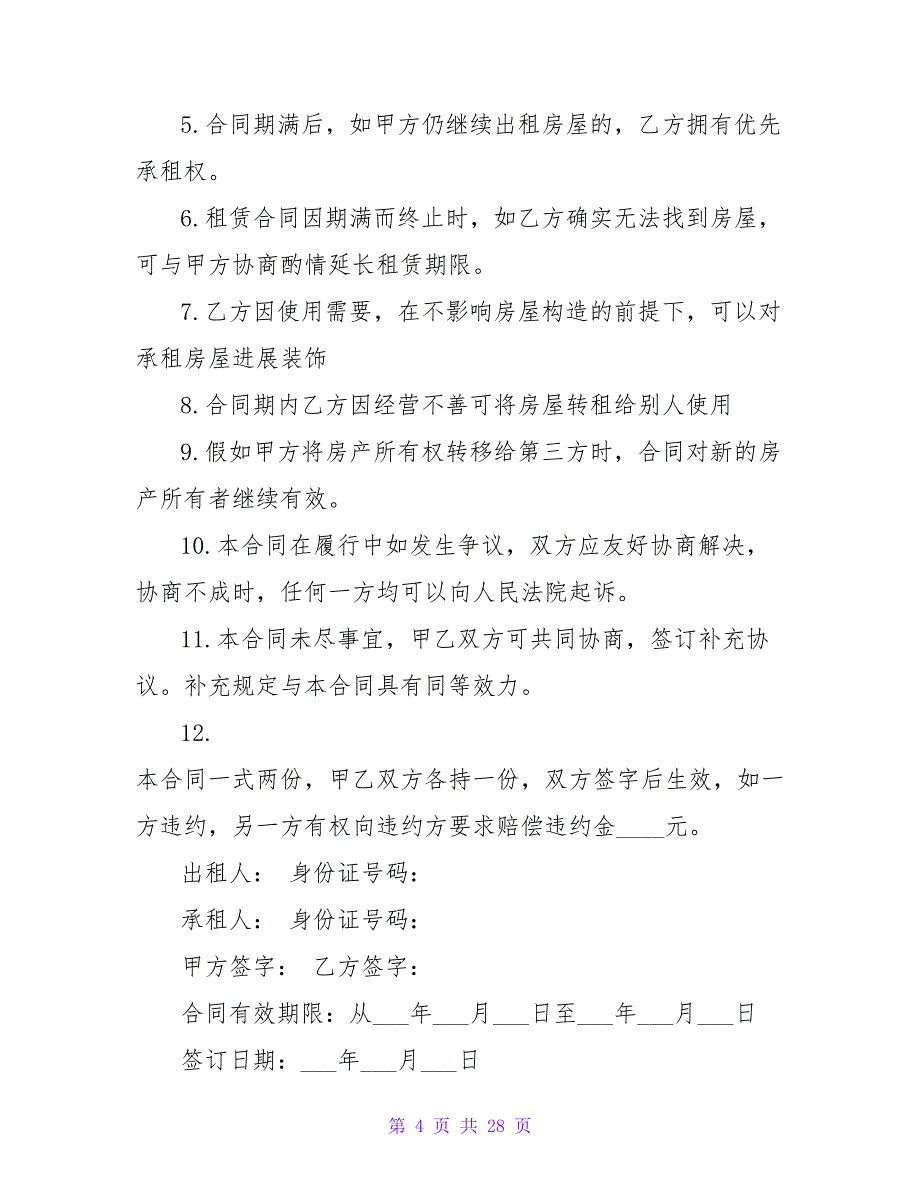 5.合同期满后，如甲方仍继续出租房屋的，乙方拥有优先
承租权。
6.租赁合同因期满而终止时，如乙方确实无法找到房屋，
可与甲方协商酌情延长租赁期限。
7.乙方因使用需要，在不影响房屋构造的前提下，可以对
承租房屋进展装饰
8.合同期内乙方因经营不善可将房屋转租给别人使用
9.假如甲方将房产所有权转移给第三方时，合同对新的房
产所有者继续有效。
10.本合同在履行中如发生争议，双方应友好协商解决，
协商不成时，任何一方均可以向人民法院起诉。
11.本合同未尽事宜，甲乙双方可共同协商，签订补充协
议。补充规定与本合同具有同等效力。
12.
本合同一式两份，甲乙双方各持一份，双方签字后生效，如一
方违约，另一方有权向违约方要求赔偿违约金____元。
出租人： 身份证号码：
承租人： 身份证号码：
甲方签字： 乙方签字：
合同有效期限：从___年___月___日至___年___月___日
签订日期：___年___月___日
第 4 页 共 28 页